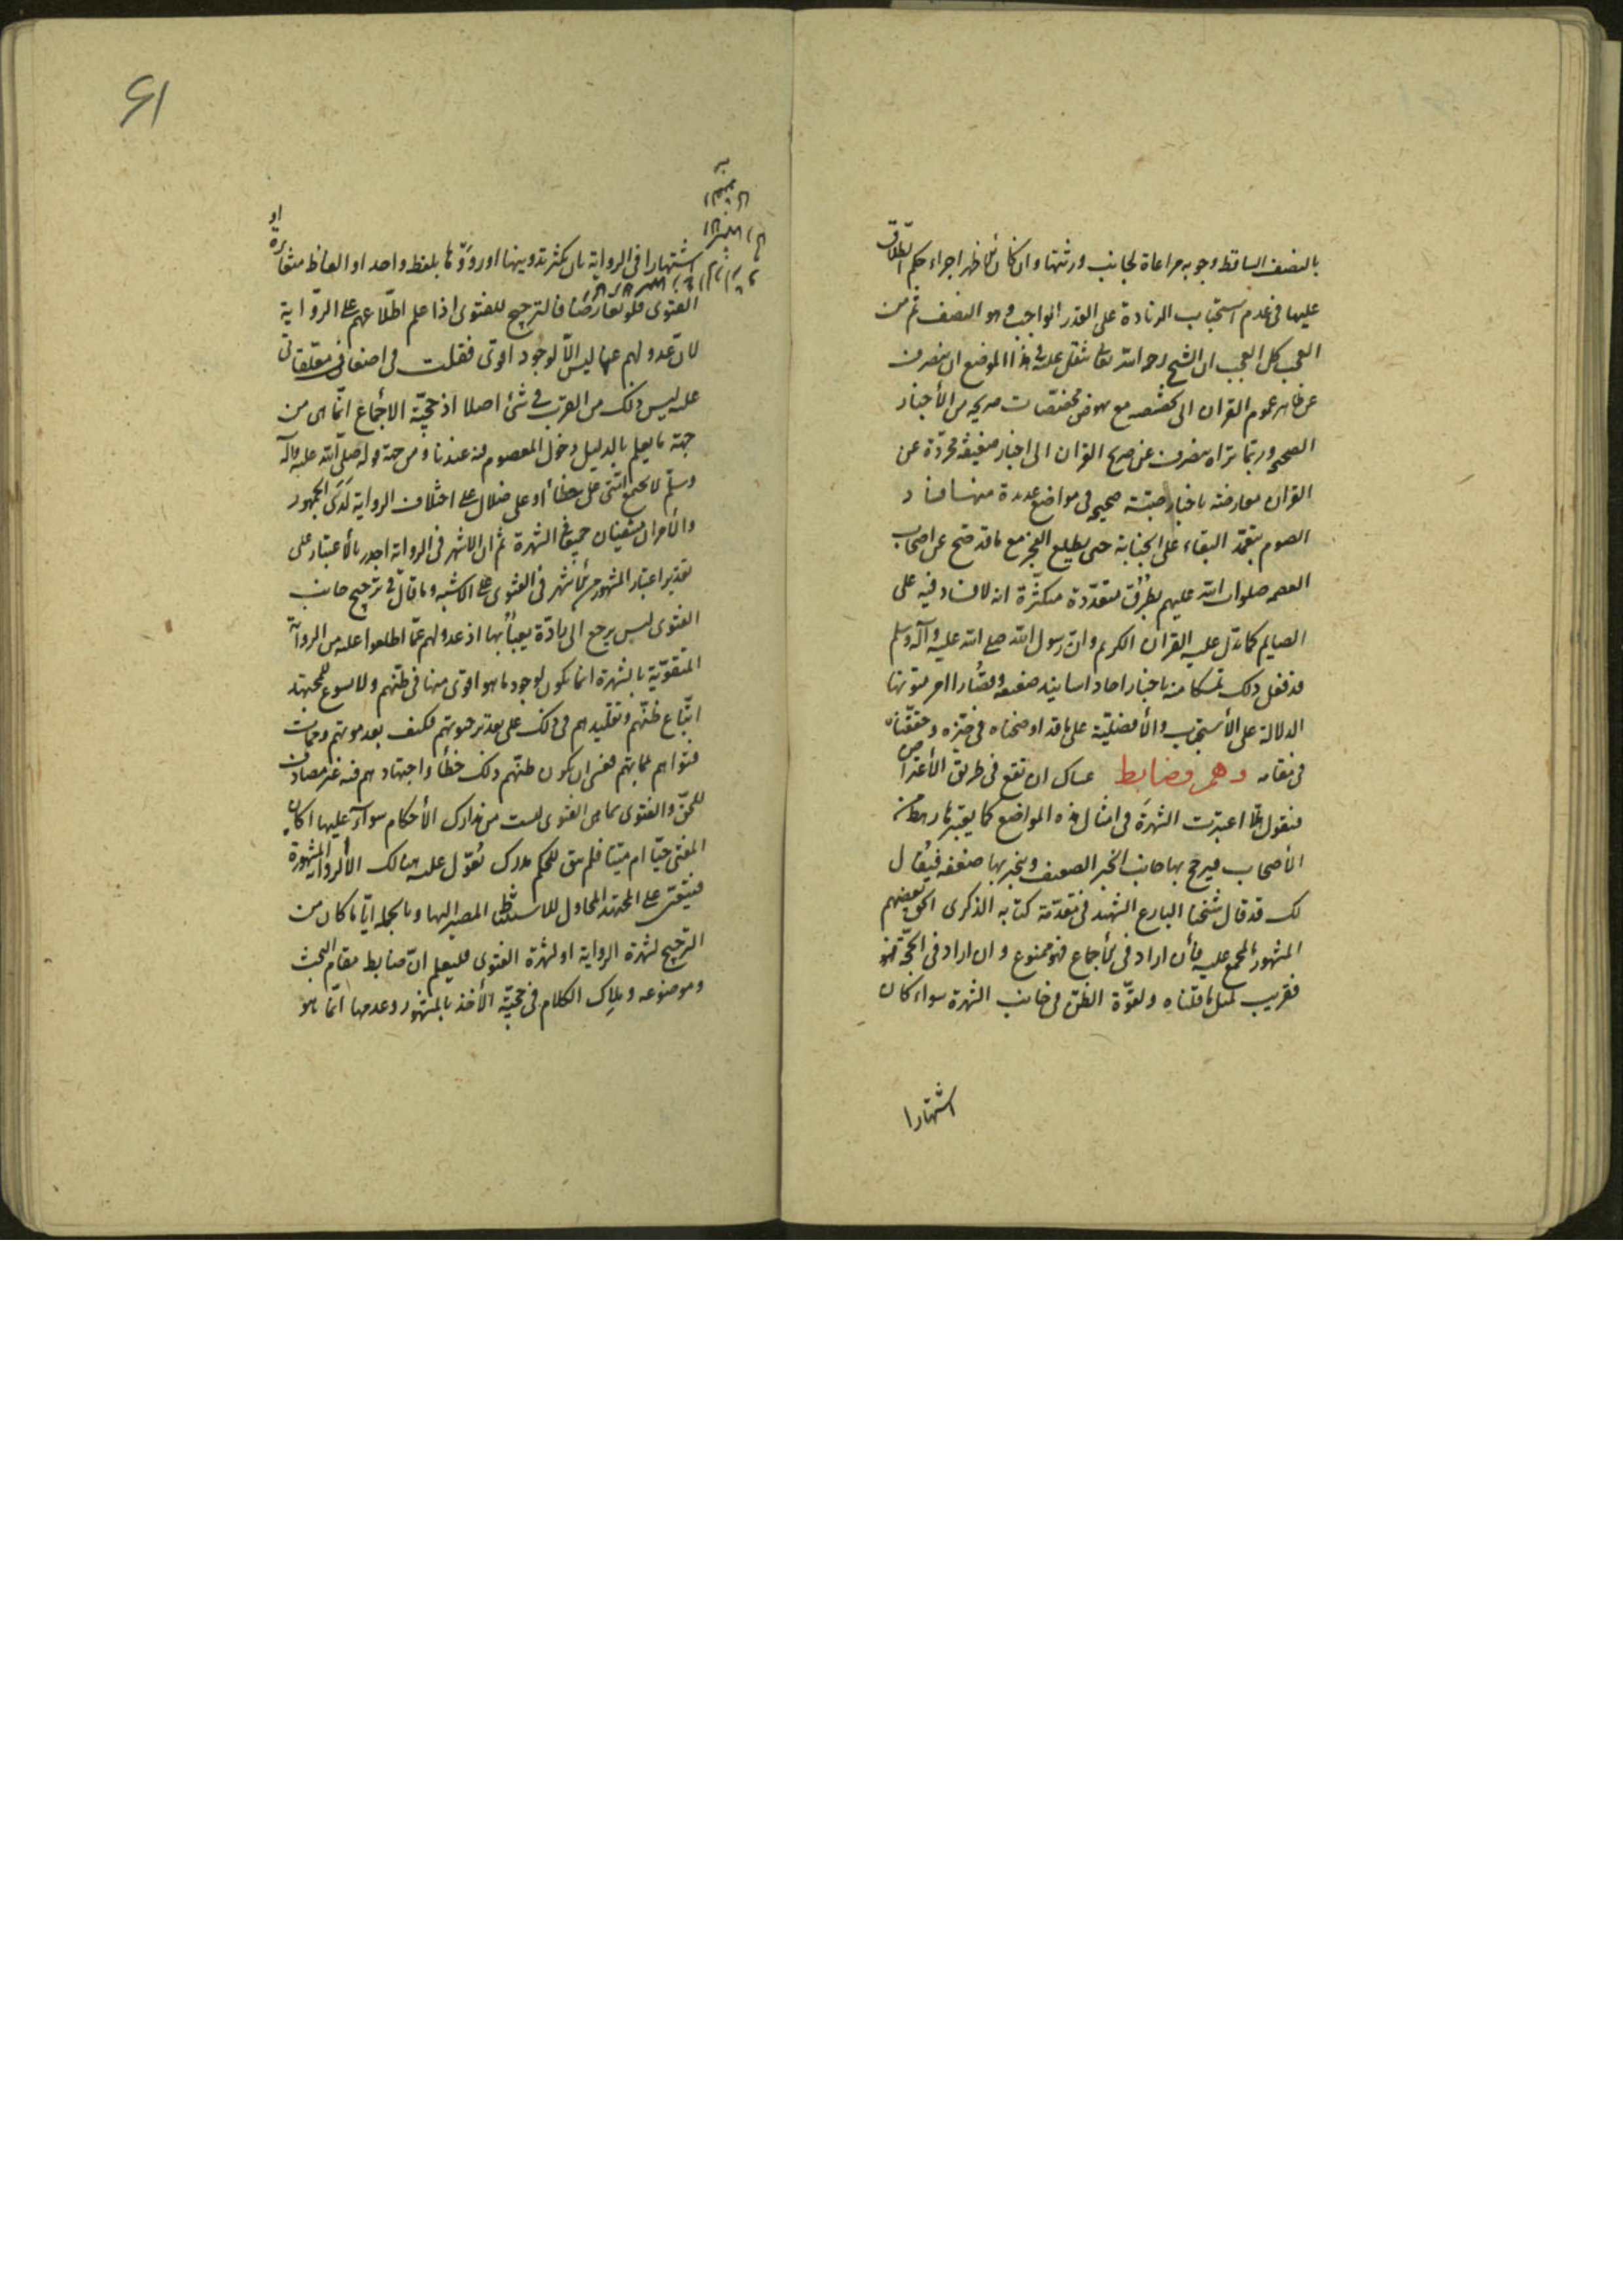 بالنصف الساقط وجوبه مراعاة لجانب ورثتها وان كان الأظهر اجراء حكم الطلاق
عليها في عدم استحباب الزيادة على القدر الواجب وهو النصف ثم من
العجب كل العجب ان الشيخ رحمه الله تعالى ثقل عليه في هذا الموضع ان ينصرف
عن ظاهر عموم القران الى تخصيصه مع نهوض مخصصات صريحه من الأخبار
الصحيحه وربما تراه ينصرف عن صريح القران الى اخبار ضعيفه مجردة عن
القران معارضة باخبار صحيحه في مواضع عديدة منها فساد
الصوم بتعمد البقاء على الجنابة حتى يطلع الفجر مع ما قد صح عن اصحاب
العصمه صلوات الله عليهم بطرق متعددة متكثرة انه لا فساد فيه على
الصايم كما تدل عليه القران الكريم وان رسول الله صلى الله عليه وآله وسلم
قد فعل ذلك تمسكا منه باخبار احاد اسانيدها ضعيفه وقصارا امر متونها
الدلالة على الأستحباب والأفضلية على ما قد اوضحناه في حيزه وحققناه
في مقامه وهم وضابط عساك ان تقع في طريق الأعتراض
فنقول هلا اعتبرت الشهرة في امثال هذه المواضع كما يعتبرها رهط من
الأصحاب فيرجح بها جانب الخبر الضعيف وينجبر بها ضعفه فيقال
لك قد قال شيخنا البارع الشهيد في مقدمة كتابه الذكرى الحق بعضهم
المشهور بالمجمع عليه فأن اراد في الأجماع فهو ممنوع وان اراد في الحجة فهو
فقريب لمثل ما قلناه ولقوة الظن في جانب الشهرة سواء كان
اشتهارا
61
اشتهارا في الرواية بان يكثر تدوينها او رووها بلفظ واحد او الفاظ متغايرة او
الفتوى فلو تعارضا فالترجيح للفتوى اذا علم اطلاعهم على الرواية
لان عدولهم عنها ليس الا لوجود اقوى فقلت في اصفاف معلقاتى
عليه ليس ذلك من القرب في شئ اصلا اذ حجية الاجماع انما هى من
جهة ما يعلم بالدليل دخول المعصوم فيه عندنا ومن جهة قوله صلى الله عليه وآله
وسلم لا تجتمع امتى على خطأ او على ضلال على اختلاف الرواية لدى الجمهور
والأمران منتفيان جميعا في الشهرة ثم ان الاشهر في الرواية اجدر بالأعتبار على
تقدير اعتبار المشهور من الأشهر في الفتوى على الاشبه وما قال في ترجيح جانب
الفتوى ليس يرجع الى مادة يعبأ بها اذ عدولهم عما اطلعوا عليه من الرواية
المتقوية بالشهرة انما يكون لوجود ما هو اقوى منها في ظنهم ولا يسوغ للمجتهد
اتباع ظنهم وتقليدهم في ذلك على تقدير حيوتهم فكيف بعد موتهم وممات
فتواهم بمماتهم فعسى ان يكون ظنهم ذلك خطأ واجتهادهم فيه غير مصادف
للحق والفتوى بما هى الفتوى ليست من مدارك الأحكام سوآء عليها اكان
المفتى حيا ام ميتا فلم يبق للحكم مدرك يعول عليه هنالك الا الرواية المشهورة
فيتعين على المجتهد المحاول للاستنباط المصير اليها وبالجمله ايا ما كان من
الترجيح لشهرة الرواية او لشهرة الفتوى فليعلم ان ضابط مقام البحث
وموضوعه وملاك الكلام في حجية الأخذ بالمشهور وعدمها انما هو